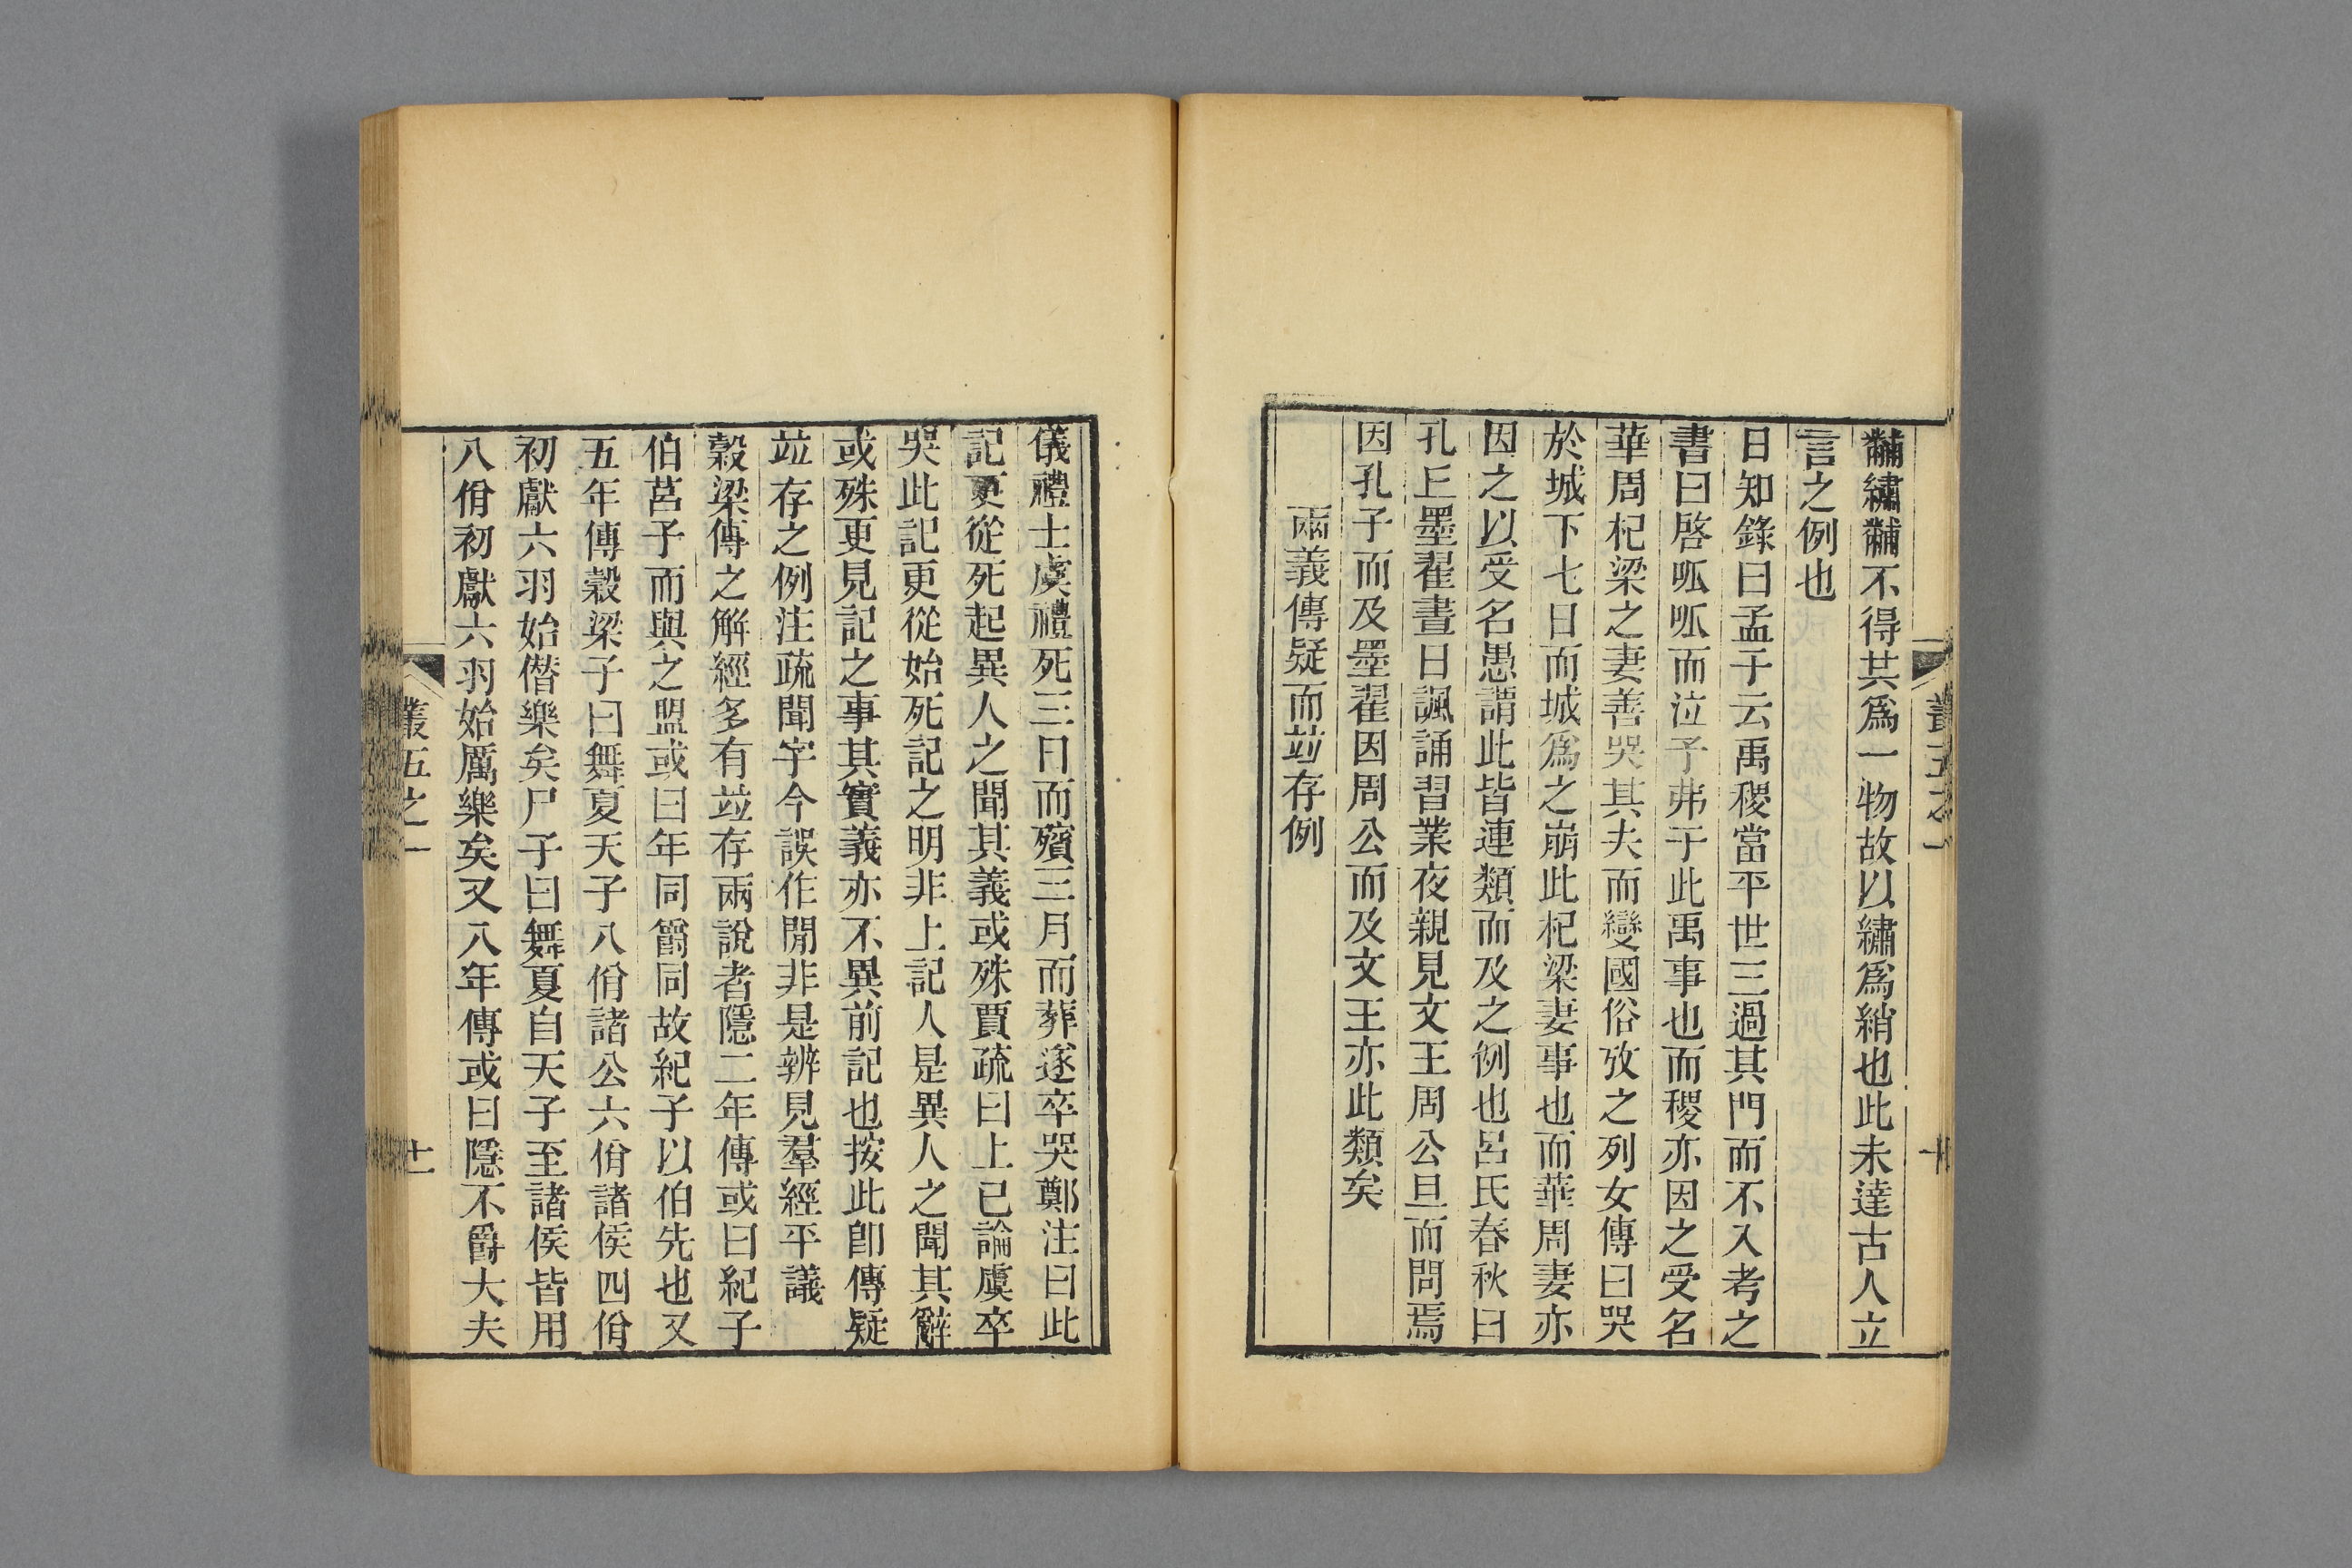 黼繡黼不得其爲一物故以繡爲綃也此未達古人立
言之例也
日知錄曰孟子云禹稷當平世三過其門而不入考之
書曰啓呱呱而泣予弗子此禹事也而稷亦因之受名
華周杞梁之妻善哭其夫而變國俗攷之列女傳曰哭
於城下七日而城爲之崩此杞梁妻事也而華周妻亦
因之以受名愚謂此皆連類而及之例也呂氏春秋曰
孔丘墨翟晝日諷誦習業夜親見文王周公旦而問焉
因孔子而及墨翟因周公而及文王亦此類矣
兩義傳疑而竝存例
叢五之一
十
儀禮士虞禮死三日而殯三月而葬遂卒哭鄭注曰此
記更從死起異人之聞其義或殊賈疏曰上已論虞卒
哭此記更從始死記之明非上記人是異人之聞其辭
或殊更見記之事其實義亦不異前記也按此卽傳疑
竝存之例注疏聞字今誤作閒非是辨見羣經平議
穀梁傳之解經多有竝存兩說者隱二年傳或曰紀子
伯莒子而與之盟或曰年同爵同故紀子以伯先也又
五年傳穀梁子曰舞夏天子八佾諸公六佾諸侯四佾
初獻六羽始僭樂矣尸子曰舞夏自天子至諸侯皆用
八佾初獻六羽始厲樂矣又八年傳或曰隱不爵大夫
叢五之一
十一